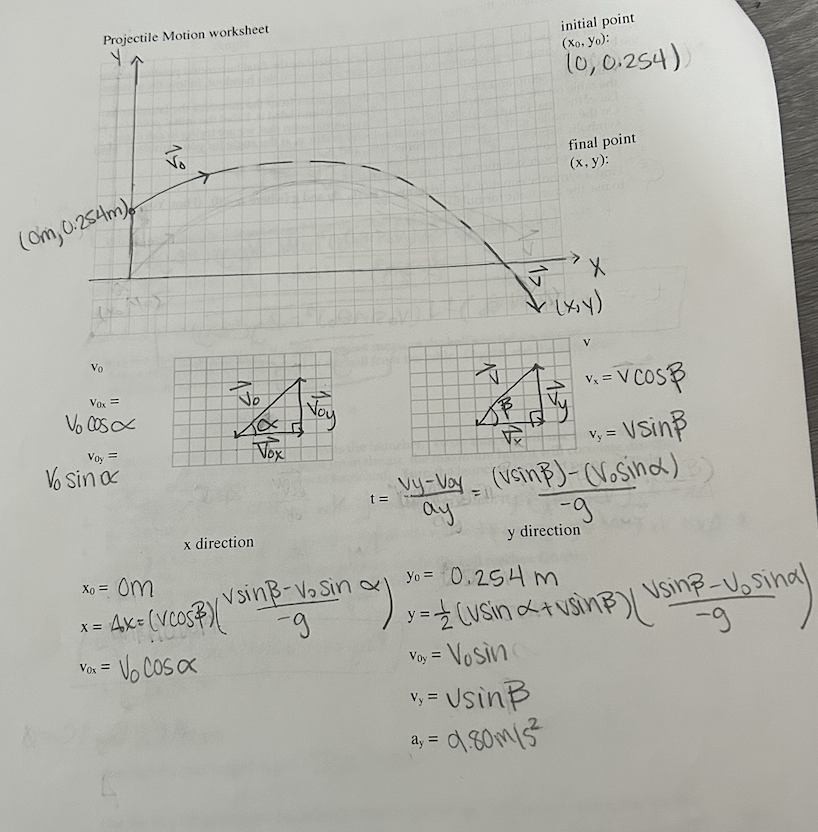 Projectile Motion worksheet
initial point
(x₀, y₀):
(0, 0.254)
Y
V⃗₀
final point
(x, y):
(0m, 0.254m)
X
V⃗
(x,y)
v₀
v₀ₓ =
V₀ cos α
v₀ᵧ =
V₀ sin α
V⃗₀
α
V⃗₀y
V⃗₀x
V⃗
β
V⃗y
V⃗x
v
vₓ = V cos β
vᵧ = V sin β
t = (Vy - V₀y)/ay = ((V sin β) - (V₀ sin α))/-g
x direction
y direction
x₀ = 0m
x = Δx = (V cos β)((V sin β - V₀ sin α)/-g)
v₀ₓ = V₀ cos α
y₀ = 0.254 m
y = 1/2 (V sin α + V sin β)((V sin β - V₀ sin α)/-g)
v₀ᵧ = V₀ sin
vᵧ = V sin β
aᵧ = 9.80 m/s²